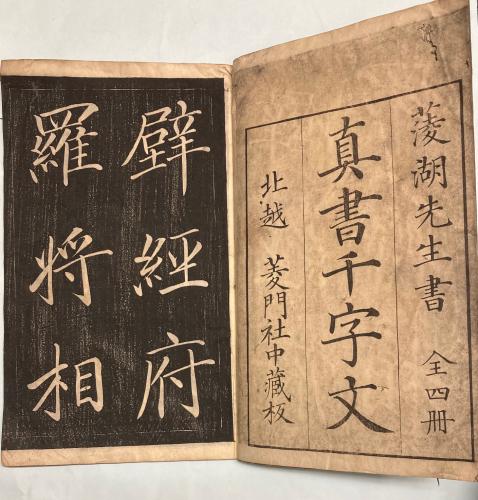 蓤湖先生書 全四冊
真書千字文
北越 菱門社中藏板
壁經府
羅將相